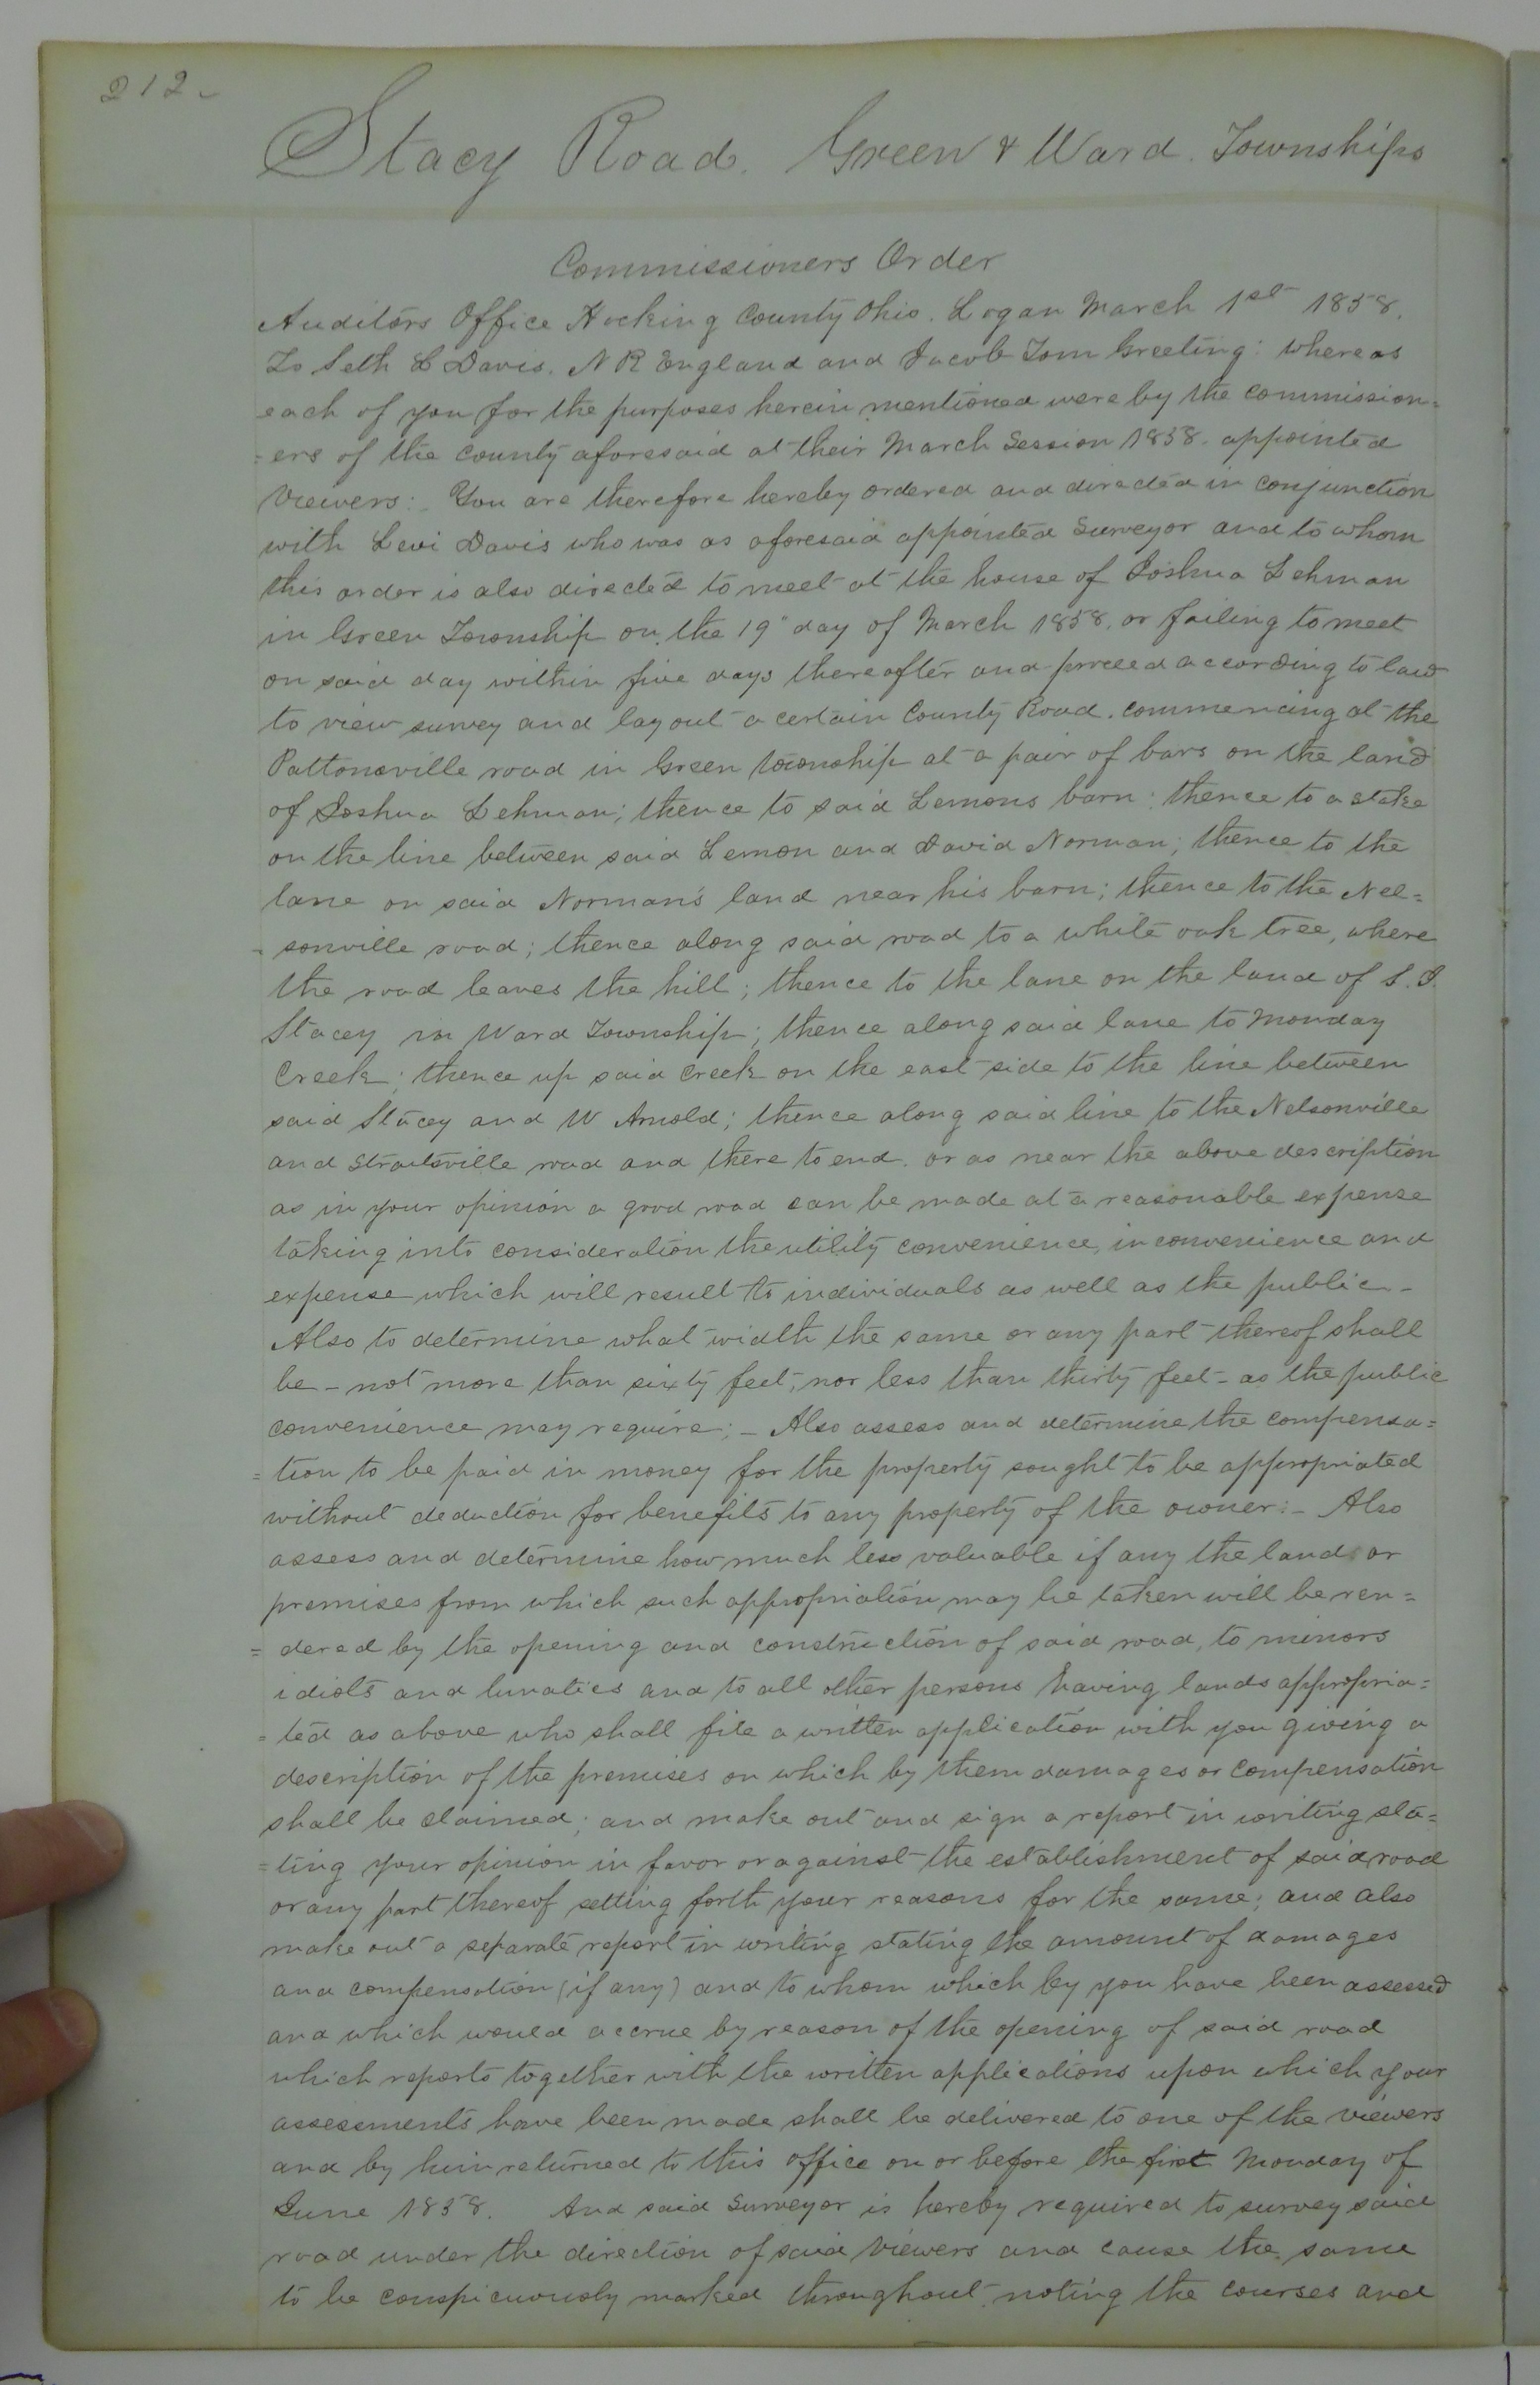 212-
Stacy Road. Green & Ward. Townships
Commissioners Order
Auditors Office Hocking County Ohio. Logan March 1st 1858.
To Seth L Davis. N R England and Jacob Tom Greeting: whereas
each of you for the purposes herein mentioned were by the commission=
=ers of the county aforesaid at their March Session 1858. appointed
Viewers: You are therefore hereby ordered and directed in conjunction
with Levi Davis who was as aforesaid appointed Surveyor and to whom
this order is also directed to meet at the house of Joshua Lehman
in Green Township on the 19" day of March 1858, or failing to meet
on said day within five days thereafter and proceed according to law
to view survey and lay out a certain County Road. commencing at the
Pattonsville road in Green township at a pair of bars on the land
of Joshua Lehman; thence to said Lemons barn; thence to a stake
on the line between said Lemon and David Norman; thence to the
lane on said Norman's land near his barn; thence to the Nel=
-sonville road; thence along said road to a white oak tree, where
the road leaves the hill; thence to the lane on the land of S. S.
Stacey in Ward Township; thence along said lane to Monday
Creek; thence up said creek on the east side to the line between
said Stacey and W Arnold; thence along said line to the Nelsonville
and Straitsville road and there to end. or as near the above description
as in your opinion a good road can be made at a reasonable expense
taking into consideration the utility convenience, inconvenience and
expense which will result to individuals as well as the public -
Also to determine what width the same or any part thereof shall
be - not more than sixty feet, nor less than thirty feet - as the public
convenience may require; - Also assess and determine the compensa=
=tion to be paid in money for the property sought to be appropriated
without deduction for benefits to any property of the owner: - Also
assess and determine how much less valuable if any the land or
premises from which such appropriation may be taken will be ren=
=dered by the opening and construction of said road, to minors
idiots and lunatics and to all other persons having lands appropria=
=ted as above who shall file a written application with you giving a
description of the premises on which by them damages or compensation
shall be claimed; and make out and sign a report in writing sta=
=ting your opinion in favor or against the establishment of said road
or any part thereof setting forth your reasons for the same; and also
make out a separate report in writing stating the amount of damages
and compensation (if any) and to whom which by you have been assessed
and which would accrue by reason of the opening of said road
which reports together with the written applications upon which your
assessments have been made shall be delivered to one of the viewers
and by him returned to this office on or before the first Monday of
June 1858. And said Surveyor is hereby required to survey said
road under the direction of said Viewers and cause the same
to be conspicuously marked throughout noting the courses and